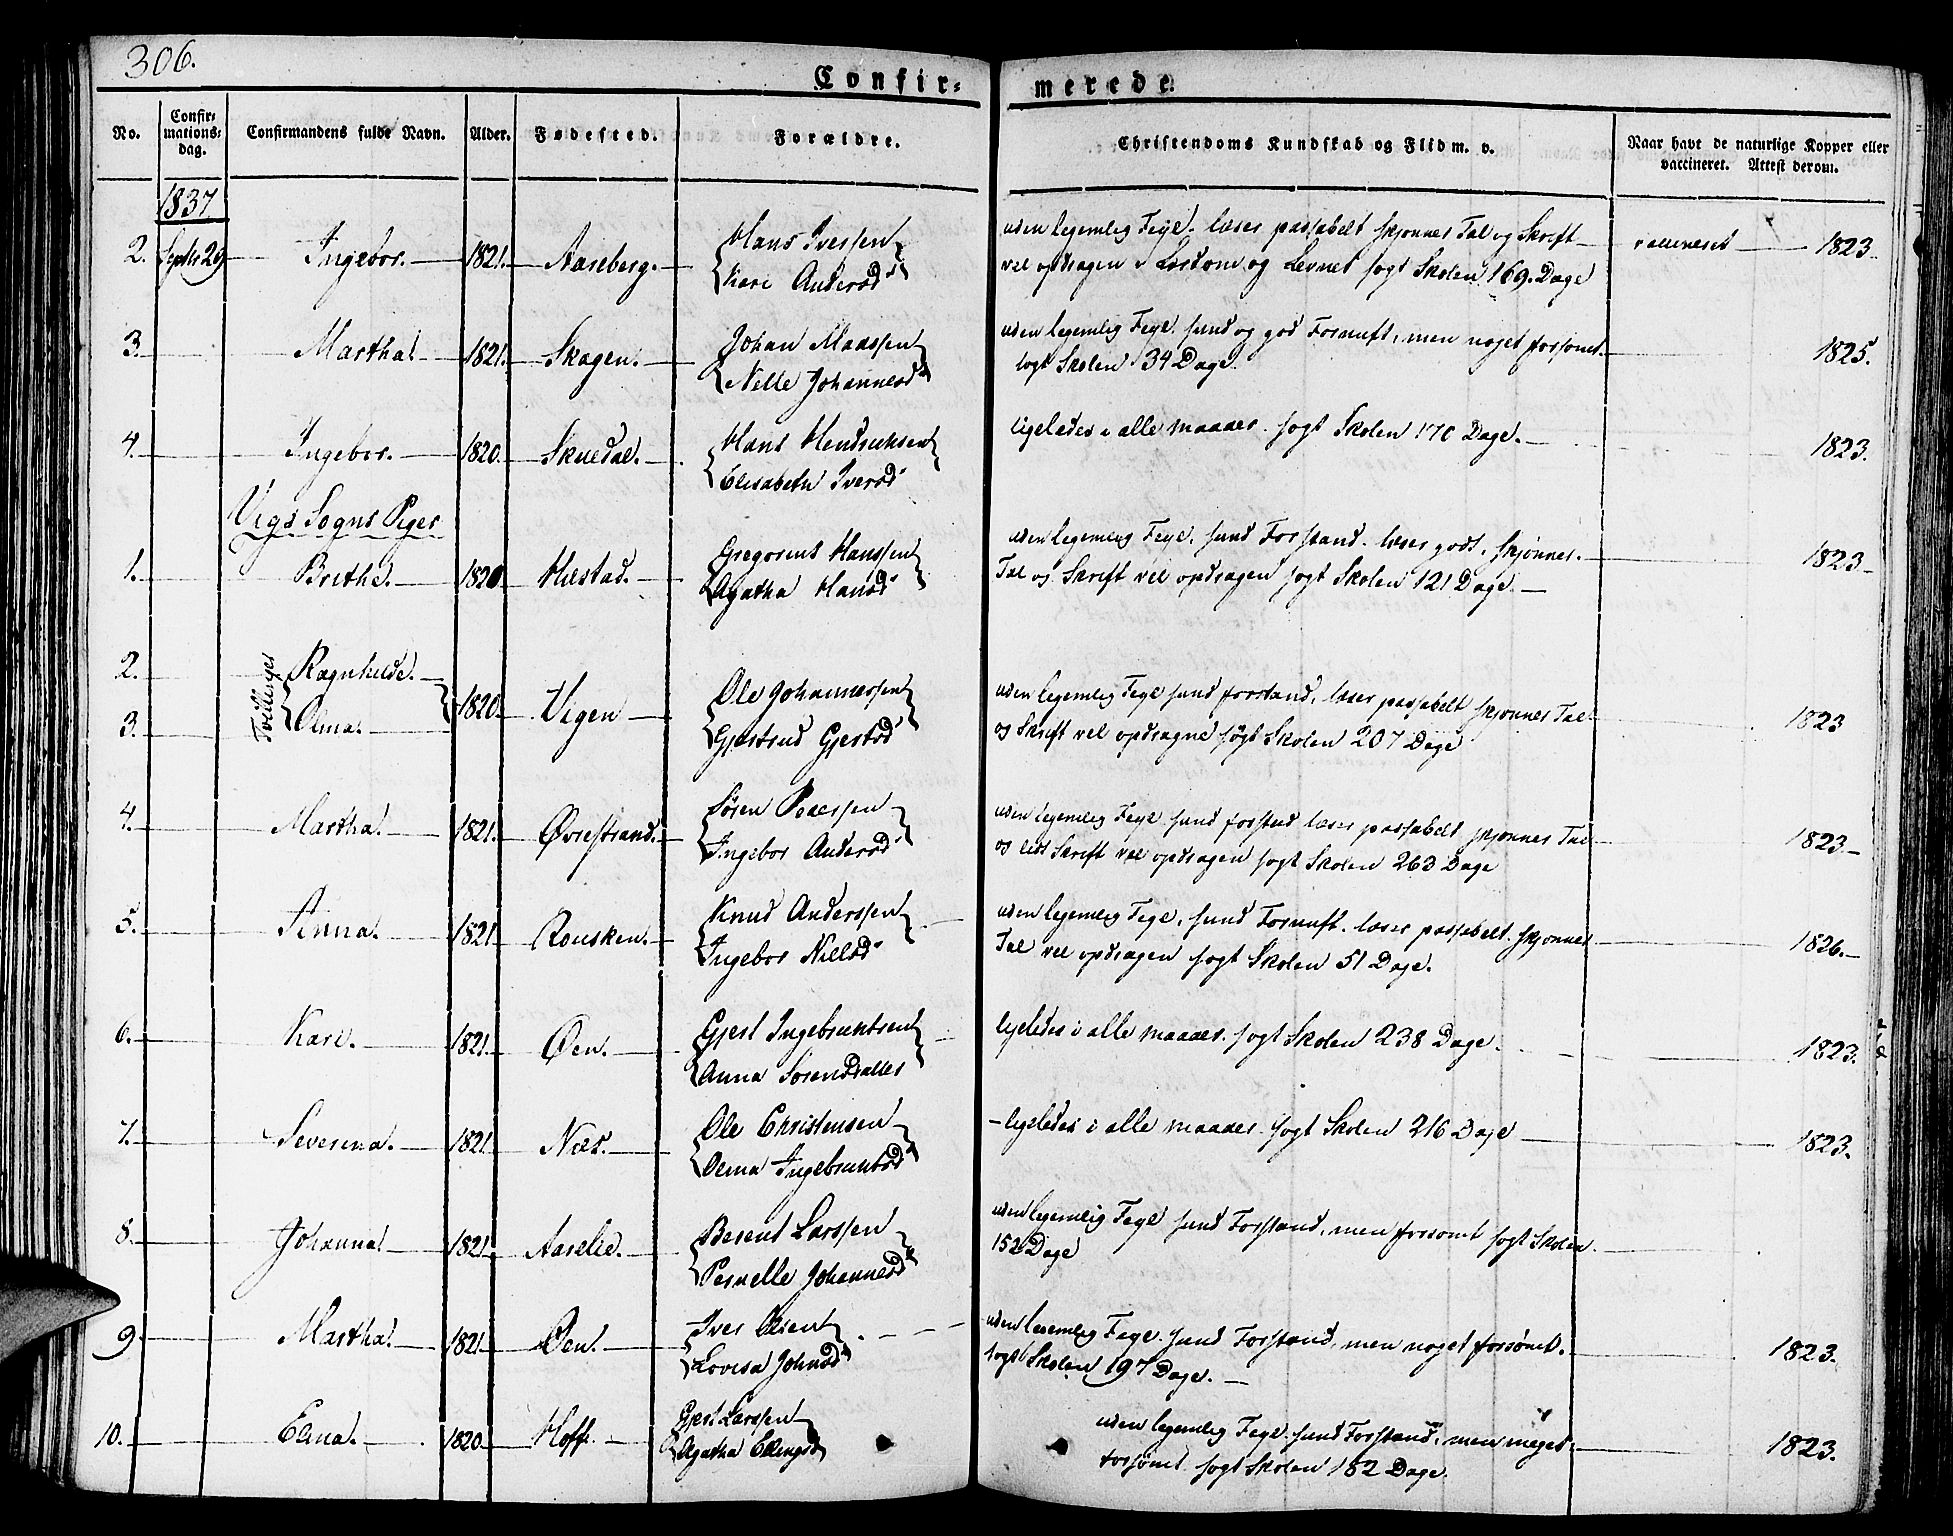 306.
Confir= merede.
No. Confir=mations=dag. Confirmandens fulde Navn. Alder. Fødested. Forældre. Christendoms Kundskab og Flid m. v. Naar havt de naturlige Kopper eller vaccineret. Attest derom.
1837
2. Septbr 29 Ingebor. 1821. Aaseberg. Hans Iverssen uden legemlig Feyl. læser passabelt skjønner Tal og Skrift vaccineret 1823
Kari Andersd vel opdragen i Lærdom og Levnet søgt Skolen 169. Dage
3. Martha. 1821. Skagen. Johan Maassen uden legemlig Feyl. sund og god Fornuft, men noget forsømt. 1825.
Nelle Johannesd søgt Skolen 34 Dage.
4. Ingebor. 1820. Skuedal. Hans Hendricksen ligeledes i alle maader. søgt Skolen 170 Dage. 1823.
Elisabeth Iversd
Vigs Sogns Piger
1. Brithe. 1820 Hiestad. Gregorius Hanssen uden legemlig Feyl. sund Forstand. læser godt, skjønner 1823
Agatha Hansd Tal og Skrift vel opdragen søgt Skolen 121 Dage.
2. Tvillinger Ragnhilde. 1820 Vigen Ole Johannessen uden legemlig Feyl sund forstand, læser passabelt skjønner Tal 1823
3. Olina. Gjertrud Gjertsd og Skrift vel opdragne søgt Skolen 207 Dage
4. Martha. 1821. Øvrestrand. Søren Pederssen uden legemlig Feyl. sund forstand læser passabelt skjønner Tal 1823
Ingebor Andersd og lidt Skrift vel opdragen søgt Skolen 263 Dage
5. Sinna. 1821. Rousken. Knud Anderssen uden legemlig Feyl, sund Fornuft. læser passabelt. skjønner 1826.
Ingebor Nielsd Tal vel opdragen søgt Skolen 51 Dage.
6. Kari. 1821. Øen. Gjert Ingebrichtsen ligeledes i alle maader. søgt Skolen 238 Dage. 1823.
Anna Sørensdatter
7. Severina. 1821 Næs. Ole Christensen ligeledes i alle maader. søgt Skolen 216 Dage 1823.
Olina Ingebrichtsd
8. Johanna. 1821. Aaselie. Berent Larssen uden legemlig Feyl sund Forstand, men forsømt søgt Skolen
Pernelle Johannesd 152 Dage
9. Martha. 1821. Øen. Iver Olsen uden legemlig Feyl. sund Forstand, men noget forsømt. 1823.
Lovisa Johnsd søgt Skolen 197 Dage.
10. Elina. 1820 Hoff. Gjert Larssen uden legemlig Feyl. sund Forstand, men meget 1823.
Agatha Ellingsd forsømt søgt Skolen 182 Dage.